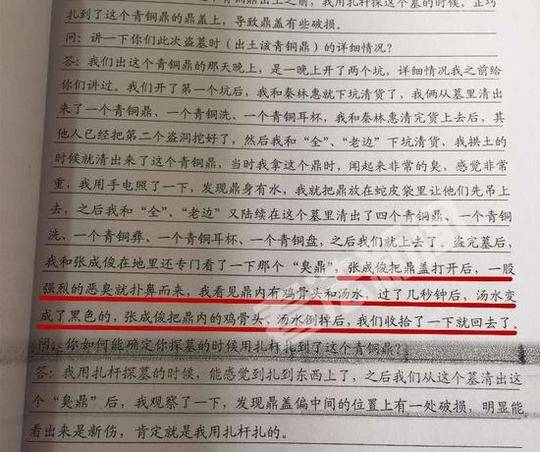 出土这个青铜鼎之前，我用扎杆探这个墓的时候，正巧
扎到了这个青铜鼎的鼎盖上，导致鼎盖有些破损。
问：讲一下你们此次盗墓时（出土该青铜鼎）的详细情况？
答：我们出这个青铜鼎的那天晚上，是一晚上开了两个坑，详细情况我之前给
你们讲过。我们开了第一个坑后，我和秦林惠就下坑清货了，我俩从墓里清出
来了一个青铜鼎、一个青铜洗、一个青铜耳杯，我和秦林惠清完货上去后，其
他人已经把第二个盗洞挖好了，然后我和“全”、“老边”下坑清货，我拱土的
时候就清出来了这个青铜鼎，当时我拿这个鼎时，闻起来非常的臭，感觉非常
重，我用手电照了一下，发现鼎身有水，我就把鼎放在蛇皮袋里让他们先吊上
去，之后我和“全”、“老边”又陆续在这个墓里清出了四个青铜鼎、一个青铜
洗、一个青铜彝、一个青铜耳杯、一个青铜盘，之后我们就上去了。盗完墓后，
我和张成俊在地里还专门看了一下那个“臭鼎”，张成俊把鼎盖打开后，一股
强烈的恶臭就扑鼻而来，我看见鼎内有鸡骨头和汤水，过了几秒钟后，汤水变
成了黑色的，张成俊把鼎内的鸡骨头、汤水倒掉后，我们收拾了一下就回去了。
问：你如何能确定你探墓的时候用扎杆扎到了这个青铜鼎？
答：我用扎杆探墓的时候，能感觉到扎到东西上了，之后我们从这个墓清出这
个“臭鼎”后，我观察了一下，发现鼎盖偏中间的位置上有一处破损，明显能
看出来是新伤，肯定就是我用扎杆扎的。